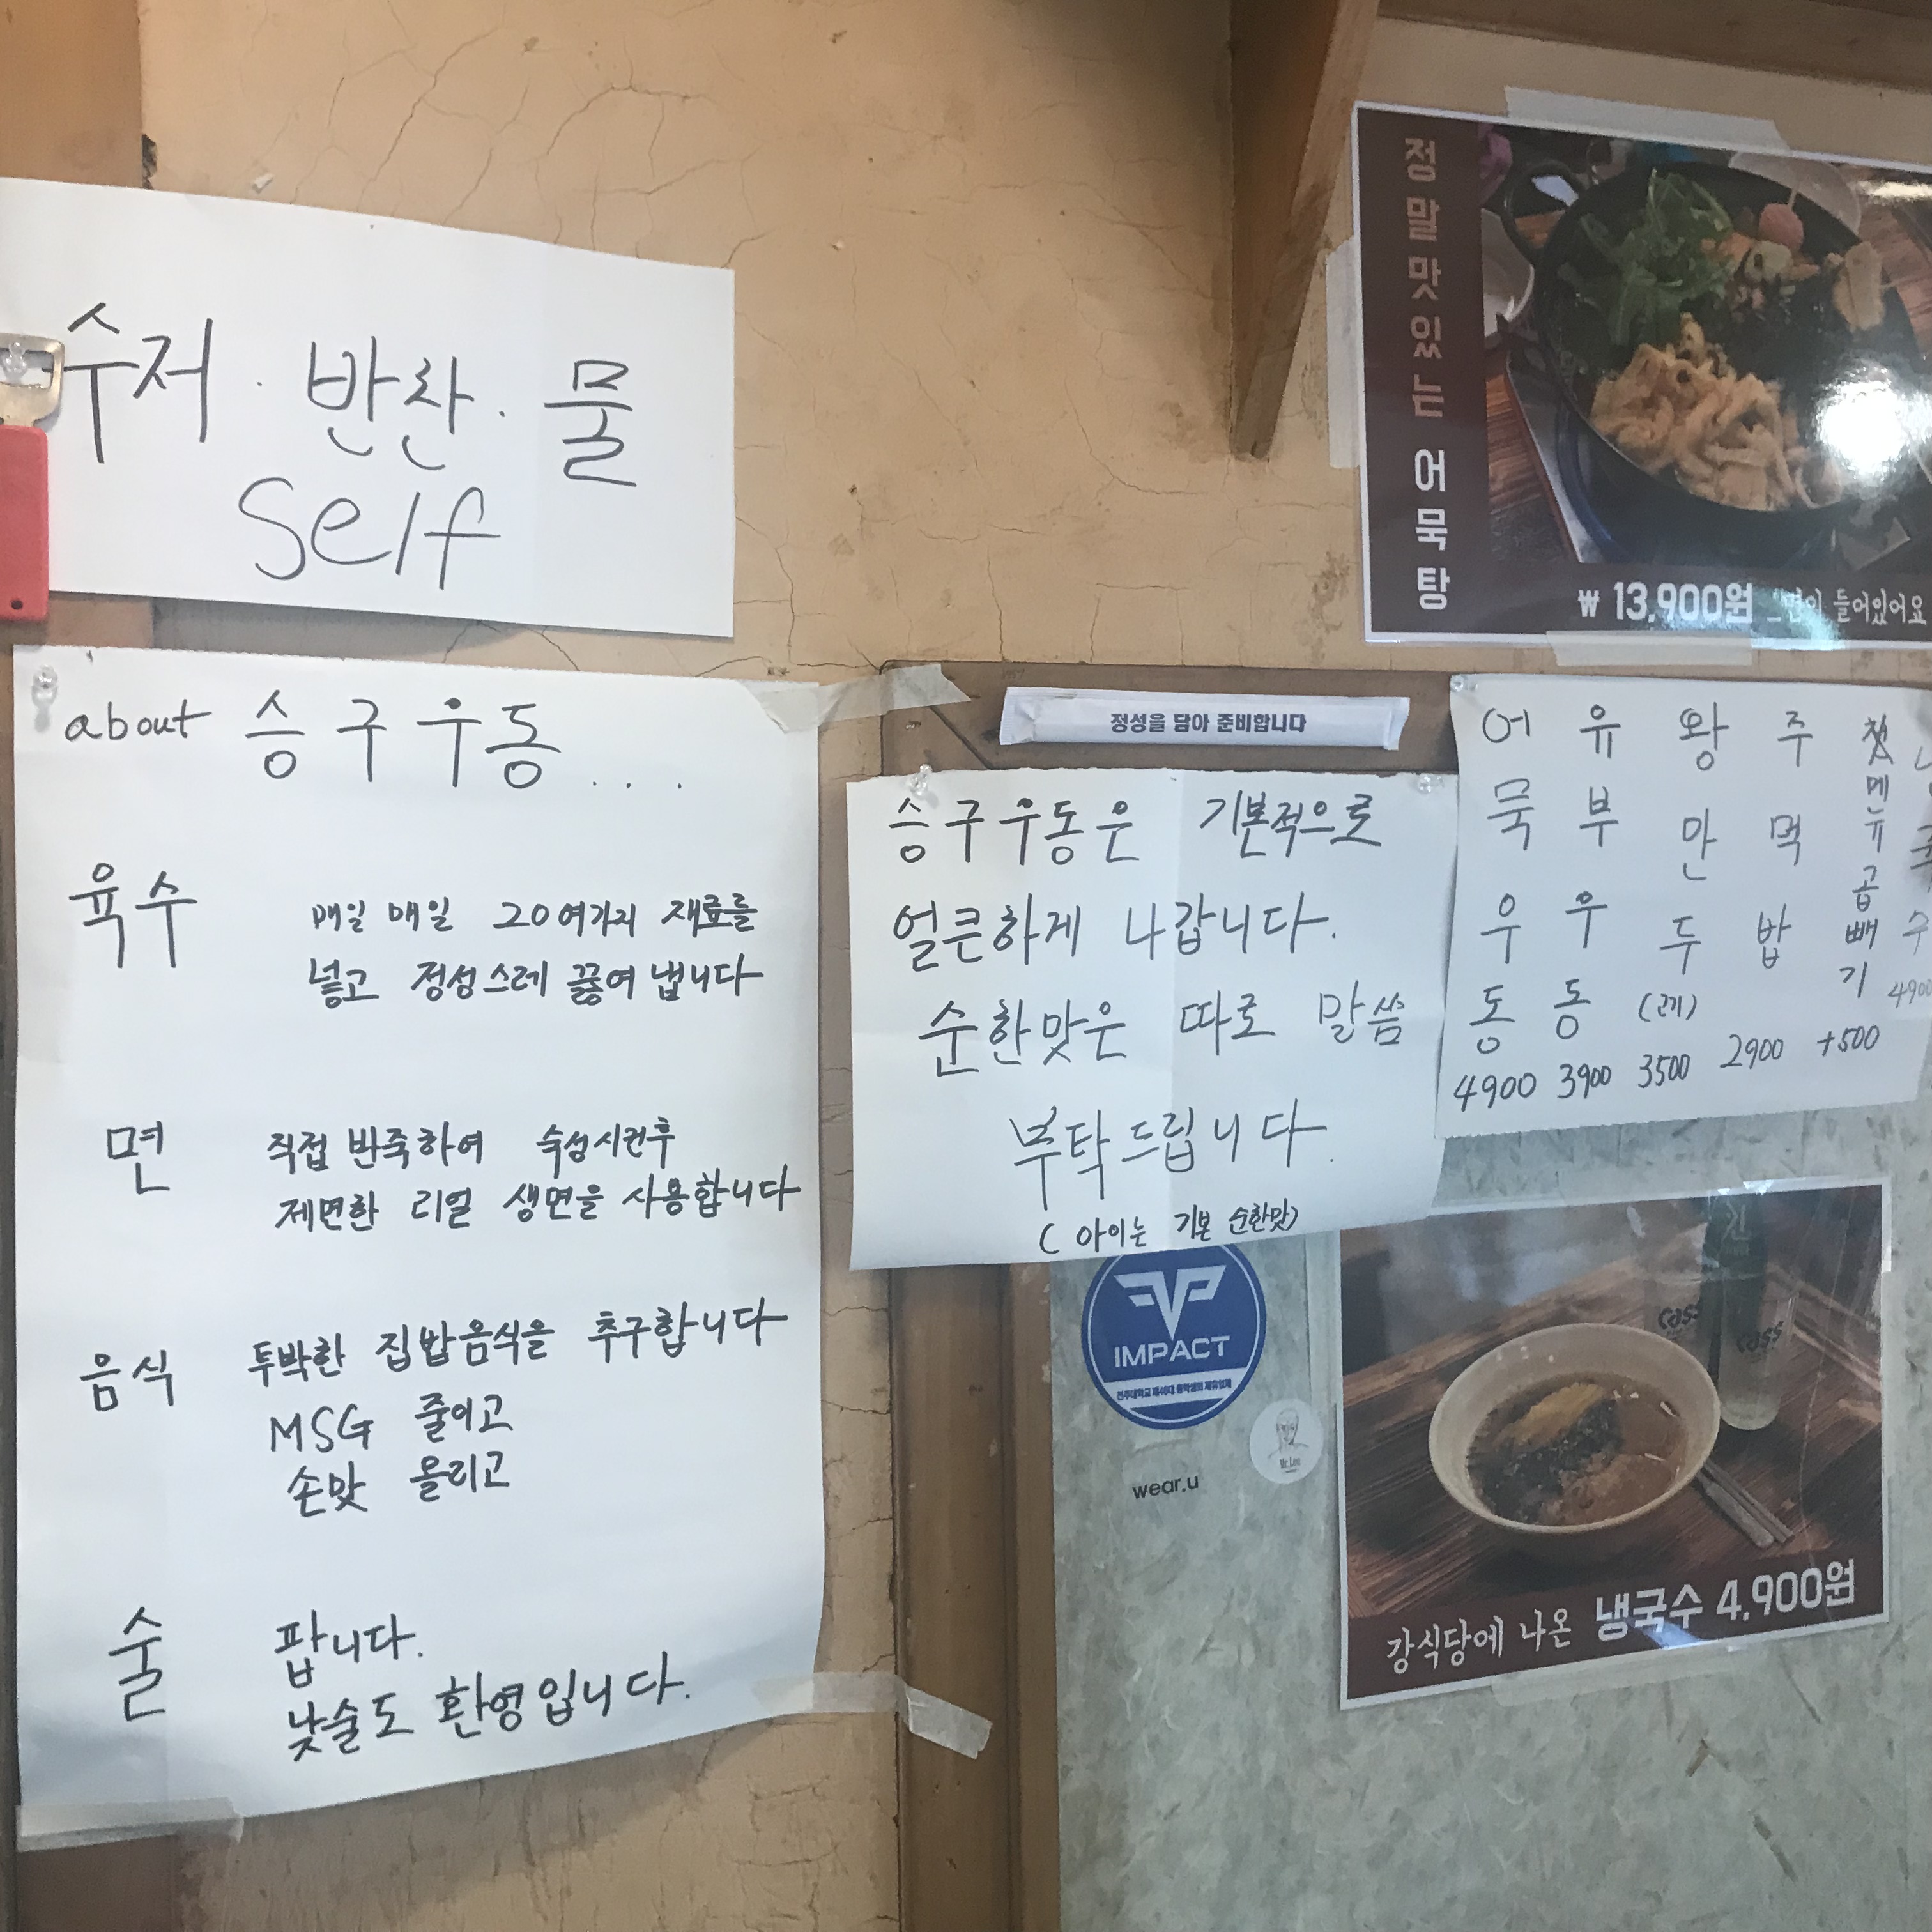 수저 · 반찬 · 물
self
about 승구우동...
육수 매일 매일 20여가지 재료를
넣고 정성스레 끓여 냅니다
면 직접 반죽하여 숙성시킨후
제면한 리얼 생면을 사용합니다
음식 투박한 집밥음식을 추구합니다
MSG 줄이고
손맛 올리고
술 팝니다.
낮술도 환영입니다.
정성을 담아 준비합니다
승구우동은 기본적으로
얼큰하게 나갑니다.
순한맛은 따로 말씀
부탁드립니다.
( 아이는 기본 순한맛)
정말맛있는 어묵탕
₩ 13,900원 면이 들어있어요
어묵우동 4900
유부우동 3900
왕만두 3500
주먹밥 2900
메뉴곱빼기 +500
IMPACT
전주대학교 제46대 총학생회 제휴업체
Mr.Lee
wear.u
Cass
Cass
강식당에 나온 냉국수 4,900원